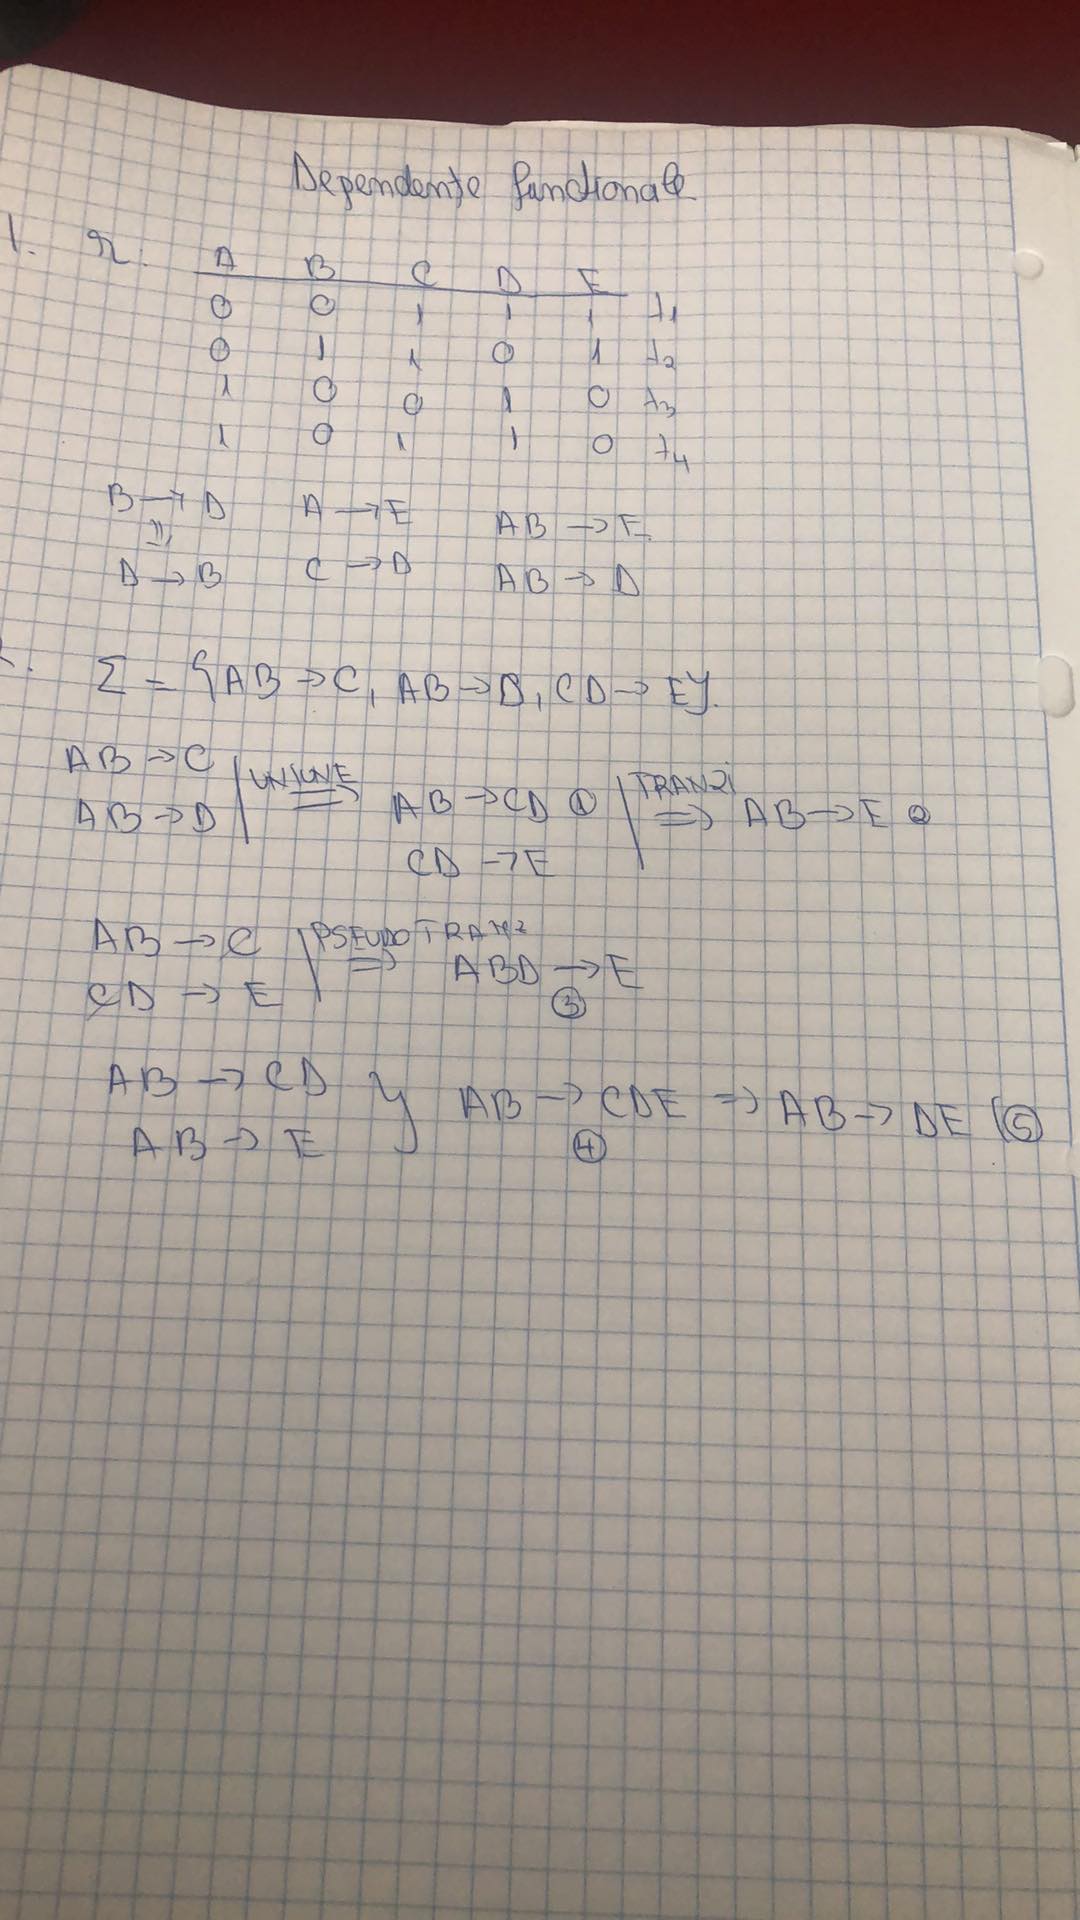 Dependențe funcționale
1. r. A B C D E
0 0 1 1 1 t1
0 1 1 0 1 t2
1 0 0 1 0 t3
1 0 1 1 0 t4
B → D A → E AB → E
⇓
D → B C → D AB → D
2. Σ = {AB → C, AB → D, CD → E}.
AB → C
AB → D UNIUNE ⇒ AB → CD ① TRANZI ⇒ AB → E ②
CD → E
AB → C PSEUDOTRANZ
CD → E ⇒ ABD → E
③
AB → CD
AB → E } AB → CDE ⇒ AB → DE (5)
④